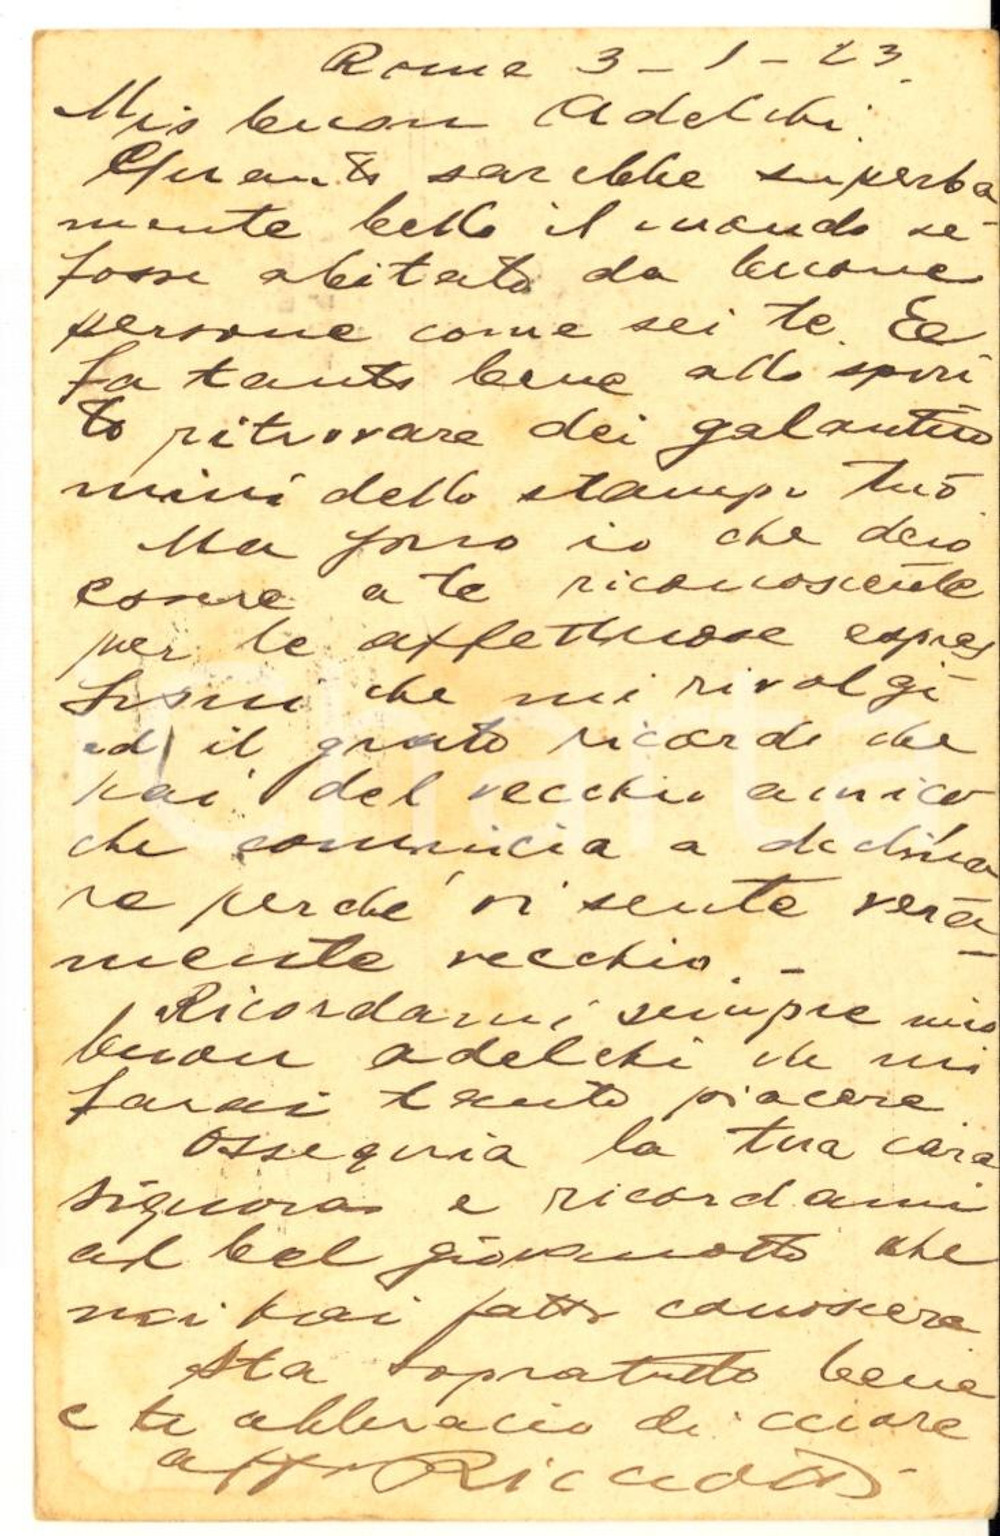 Roma 3-1-23.
Mio buon Adelchi.
Quanto sarebbe superba
mente bello il mondo se
fosse abitato da buone
persone come sei te. Ee
fa tanto bene allo spiri
to ritrovare dei galantuo
mini dello stampo tuo
Ma sono io che devo
essere a te riconoscente
per le affettuose espres
sioni che mi rivolgi
ed il grato ricordo che
hai del vecchio amico
che comincia a declina
re perché si sente vera
mente vecchio. -
Ricordami sempre mio
buon Adelchi che mi
farai tanto piacere
Ossequia la tua cara
signora e ricordami
al bel giovanotto che
mi hai fatto conoscere
Sta sopratutto bene
e ti abbraccio di cuore
aff Ricciotti